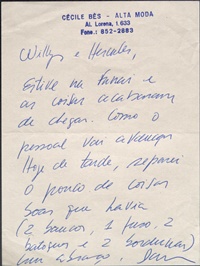 CÉCILE BÈS - ALTA MODA
Al. Lorena, 1.633
Fone.: 852-2683
Willys e Hercules,
Estive na e
as coisas acabaram
de chegar. Como o
pessoal vai avançar
Hoje de tarde, separei
o pouco de coisas
boas que havia
(2 bancos, 1 fuso, 2
batiques e 2 bordunas)
Um abraço,